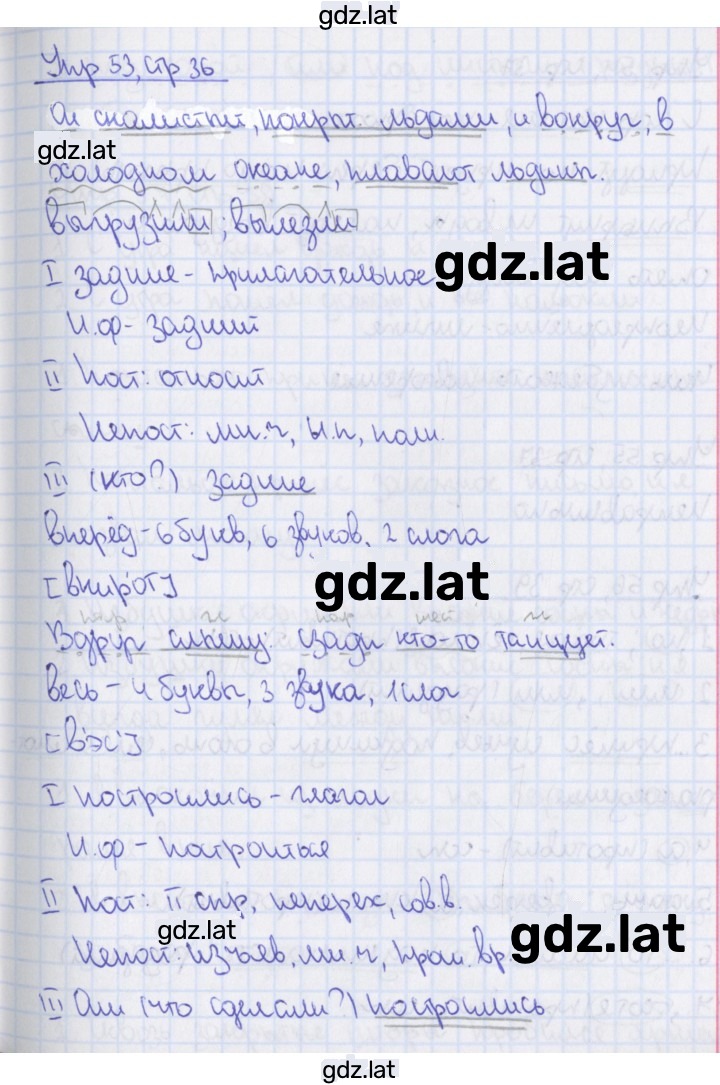 gdz.lat
Упр 53, стр 36
Он скалистый, покрыт льдами, и вокруг, в
gdz.lat
холодном океане, плавают льдины.
выгрузили; вылезли
I задние - прилагательное gdz.lat
Н.ф - задний
II Пост: относит
Непост: мн.ч, И.п, полн.
III (кто?) задние
вперёд - 6 букв, 6 звуков, 2 слога
[вп'ир'от] gdz.lat
нар г нар мест г
Вдруг слышу: сзади кто-то танцует.
весь - 4 буквы, 3 звука, 1 слог
[в'эс']
I построились - глагол
Н.ф - построиться
II Пост: II спр, неперех, сов.в.
gdz.lat gdz.lat
Непост: изъяв, мн.ч, прош.вр.
III Они (что сделали?) построились
gdz.lat